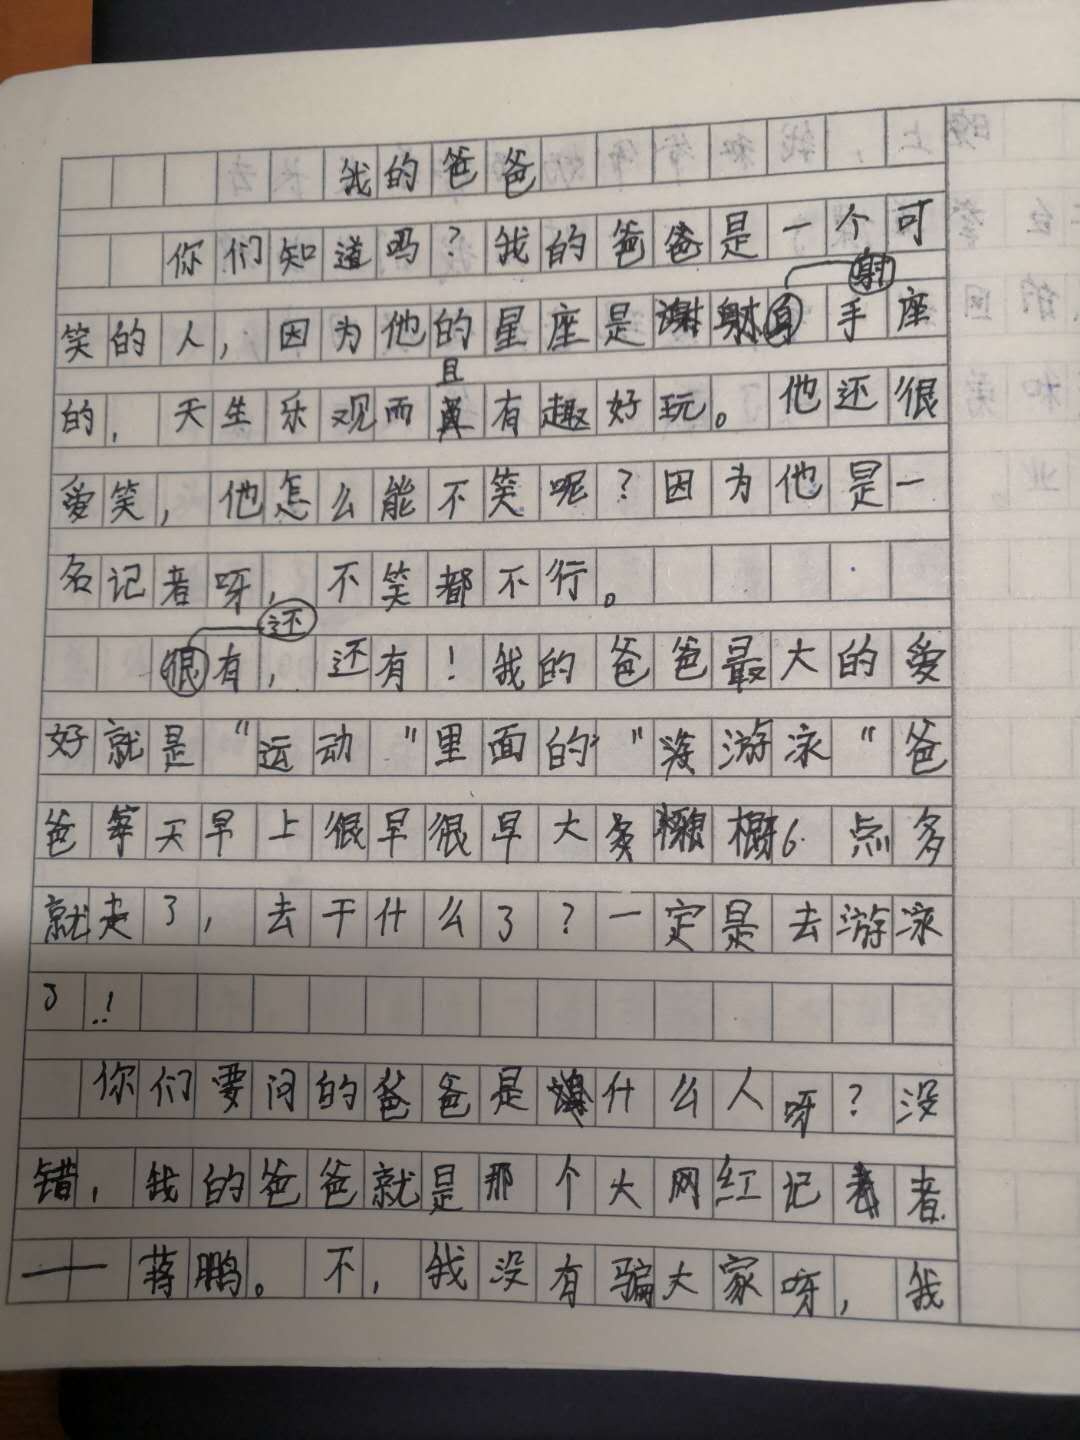 我的爸爸
你们知道吗？我的爸爸是一个可
笑的人，因为他的星座是射手座
的，天生乐观而且有趣好玩。他还很
爱笑，他怎么能不笑呢？因为他是一
名记者呀，不笑都不行。
还有，还有！我的爸爸最大的爱
好就是“运动”里面的“游泳”爸
爸每天早上很早很早大概6点多
就走了，去干什么了？一定是去游泳
了！
你们要问的爸爸是什么人呀？没
错，我的爸爸就是那个火网红记者
——蒋鹏。不，我没有骗大家呀，我